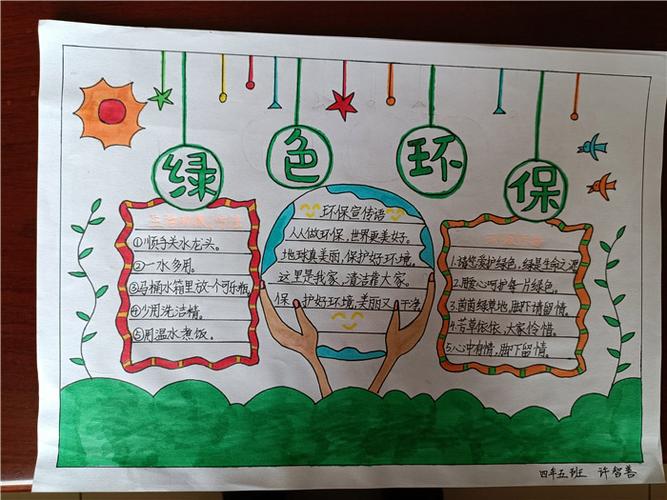 绿色环保
①顺手关水龙头。
②一水多用。
③马桶水箱里放一个可乐瓶
④少用洗洁精。
⑤用温水煮饭。
环保宣传语
人人做环保，世界更美好。
地球真美丽，保护好环境。
这里是我家，清洁靠大家。
保护好环境，美丽又干净
1.请您爱护绿色，绿是生命之源
2.用爱心呵护每一片绿色。
3.茵茵绿草地，脚下请留情。
4.芳草依依，大家怜惜。
5.心中有情，脚下留情。
四年五班 许智善